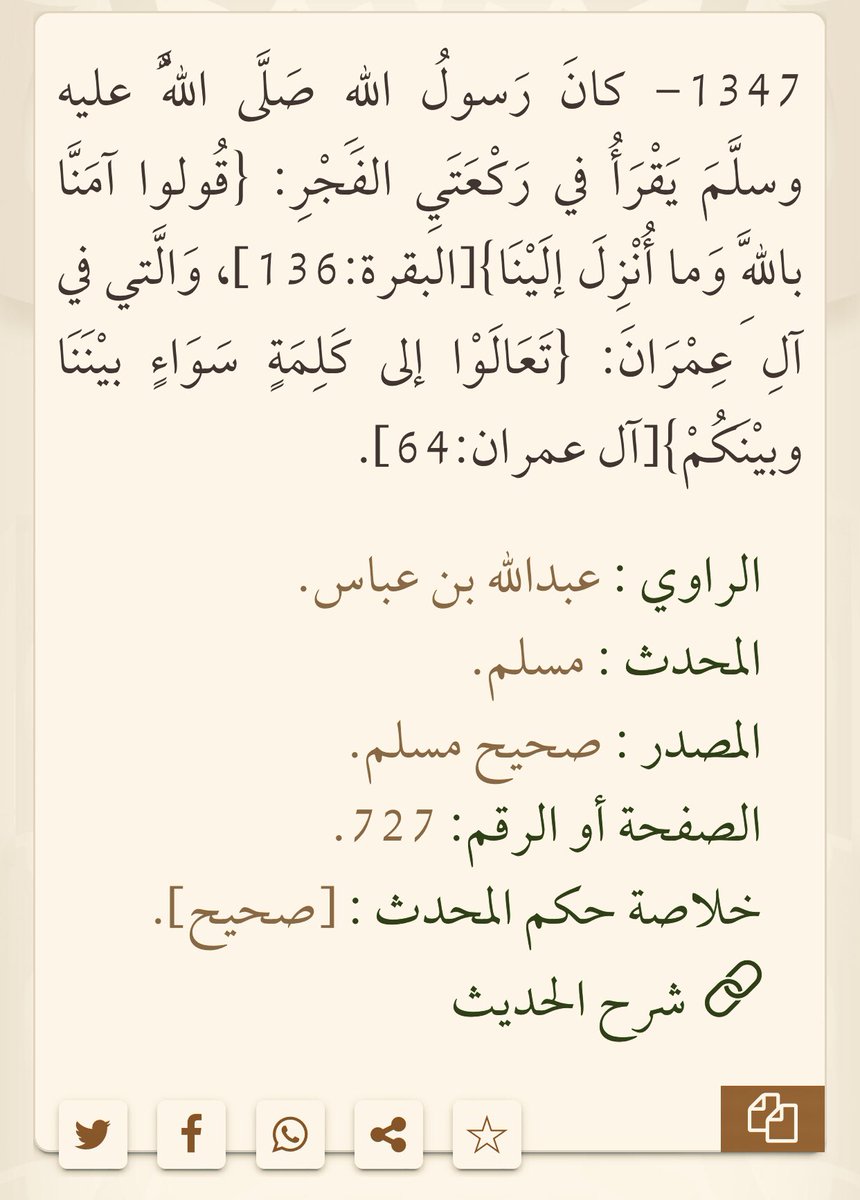 1347- كانَ رَسولُ اللهِ صَلَّى اللَّهُ عليه
وسلَّمَ يَقْرَأُ في رَكْعَتَيِ الفَجْرِ: {قُولوا آمَنَّا
باللَّهِ وَما أُنْزِلَ إلَيْنَا}[البقرة:136]، وَالَّتي في
آلِ عِمْرَانَ: {تَعَالَوْا إلى كَلِمَةٍ سَوَاءٍ بيْنَنَا
وبيْنَكُمْ}[آل عمران:64].
الراوي : عبدالله بن عباس.
المحدث : مسلم.
المصدر : صحيح مسلم.
الصفحة أو الرقم: 727.
خلاصة حكم المحدث : [صحيح].
شرح الحديث